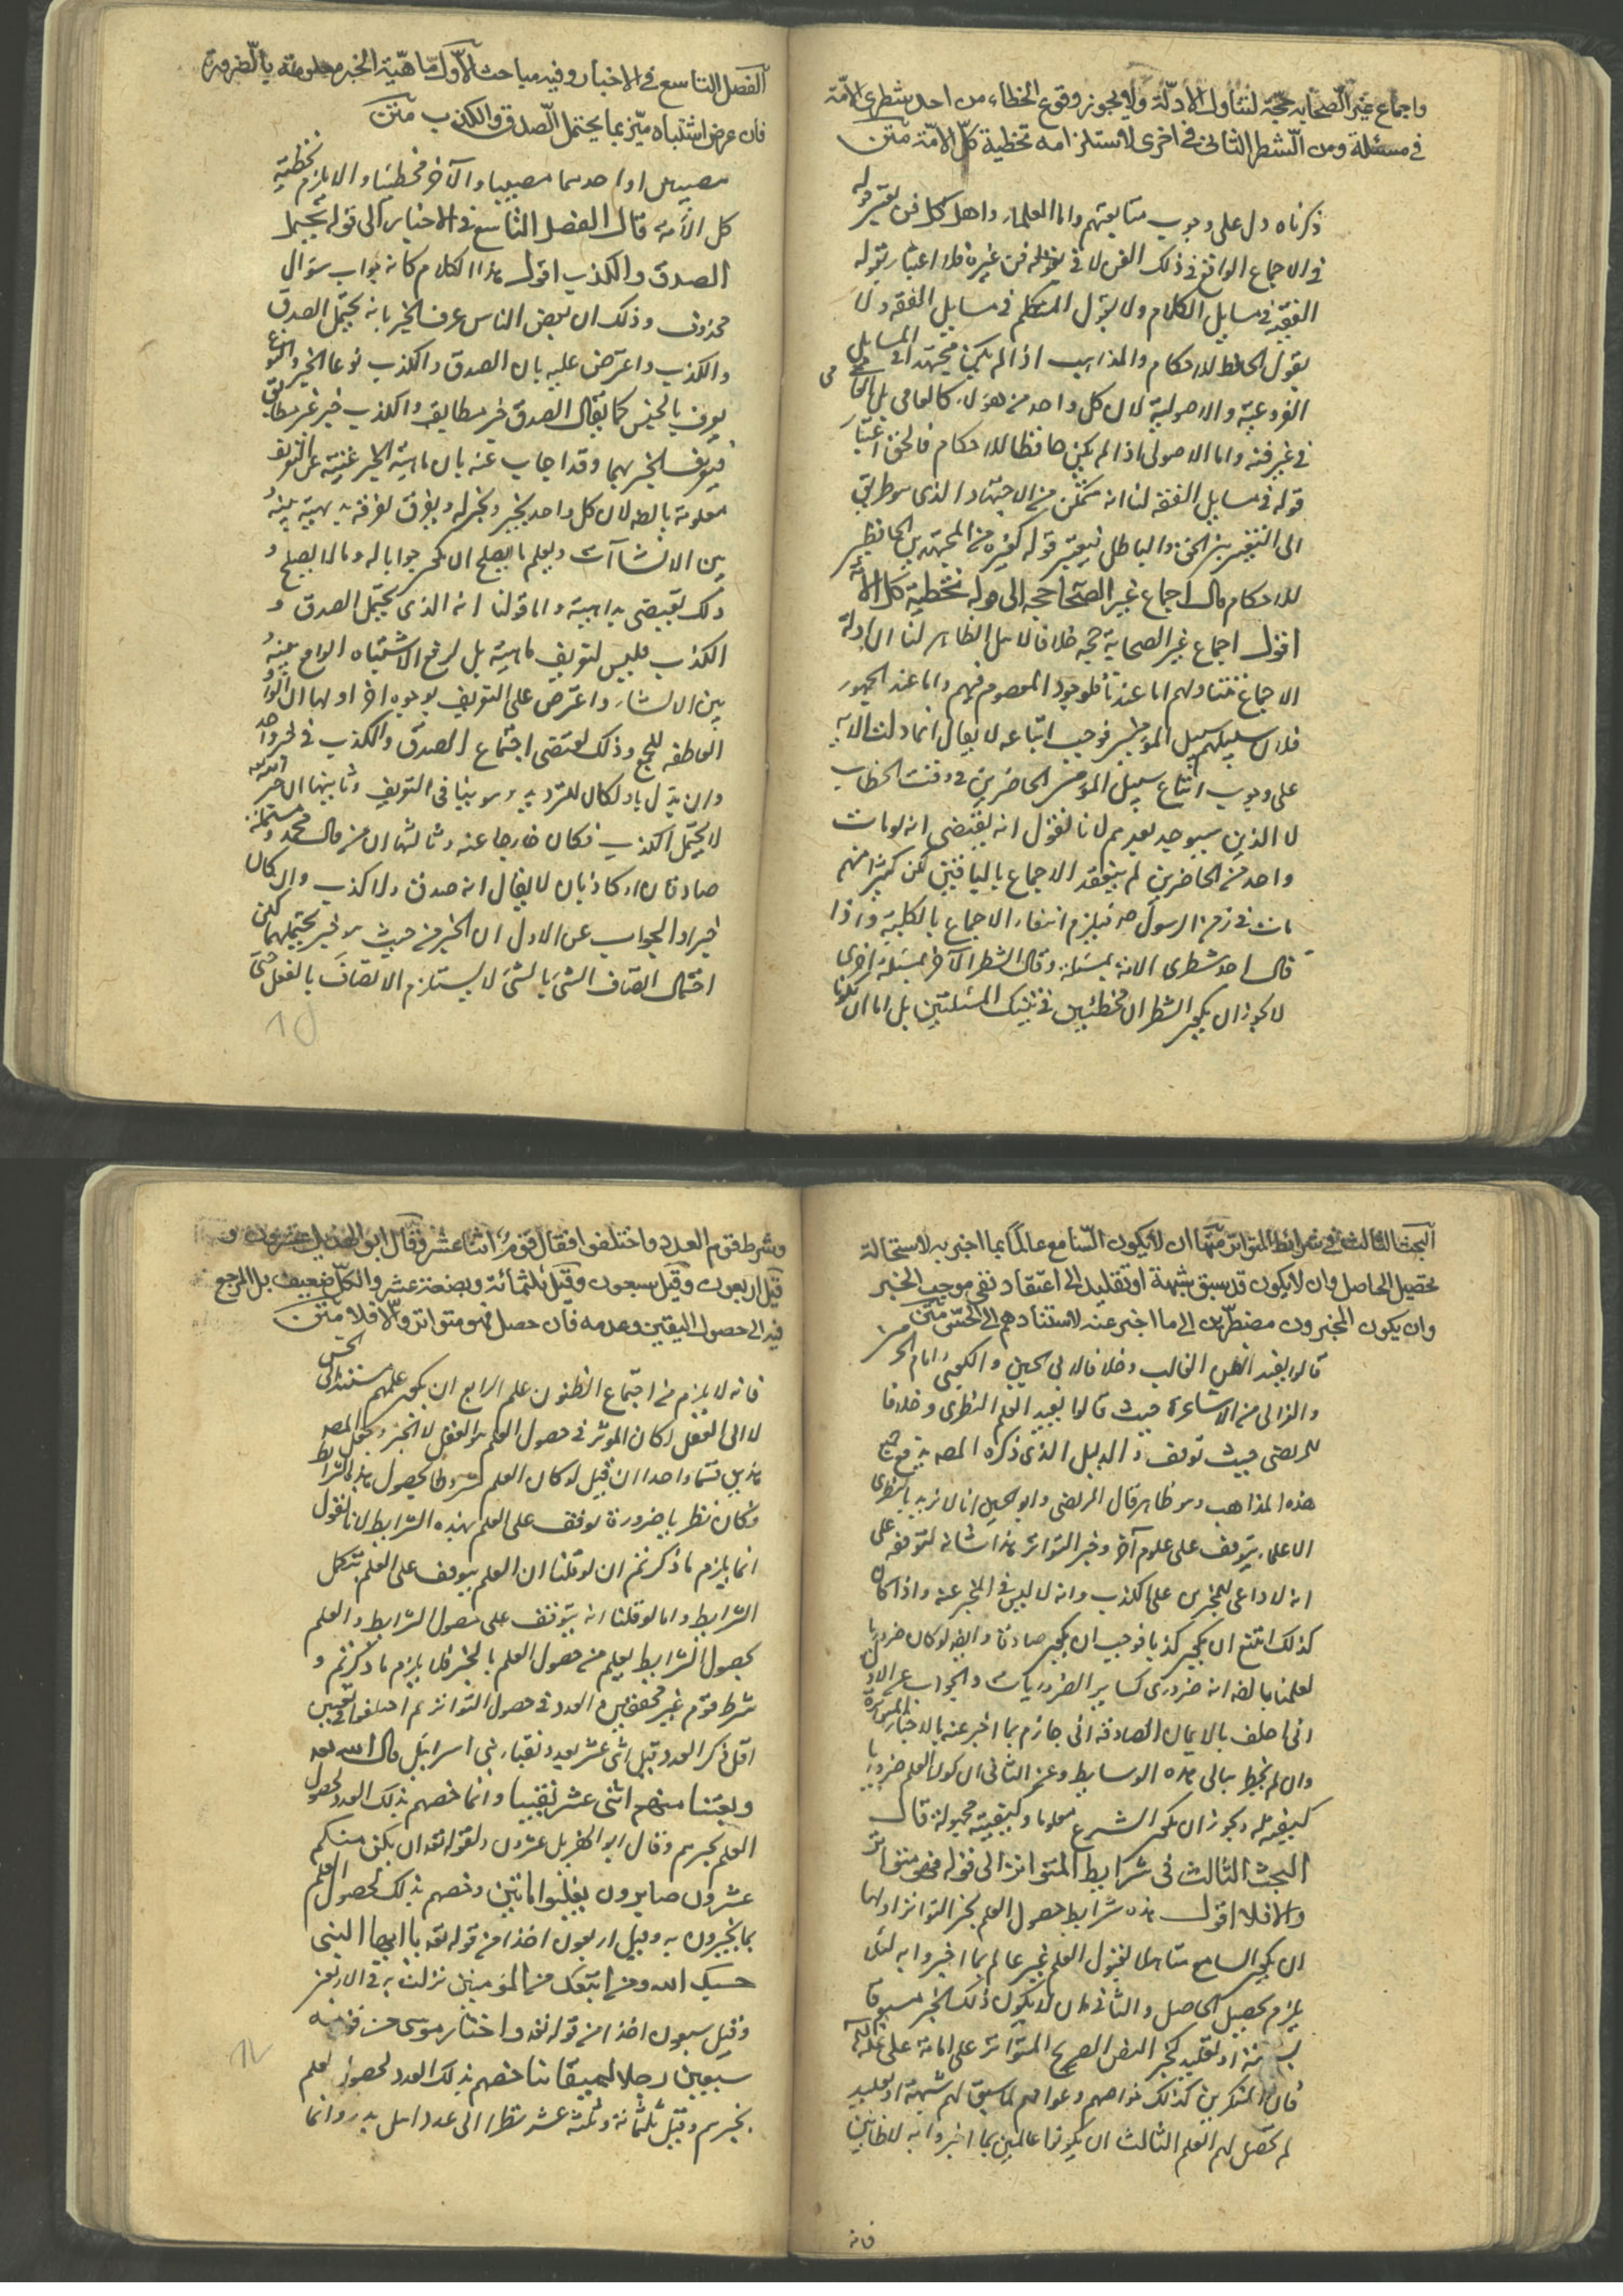 واجماع غير الصّحابه حجّة لتناول الادلّة ولا يجوز وقوع الخطاء من احد شطرى الامّة
في مسئلة ومن الشطر الثاني في اخرى لاستلزامه تخطية كلّ الامّة متن
ذكرناه دل على وجوب متابعتهم واما العلماء واهل كل فن يعتبر قوله
في الاجماع الواقع في ذلك الفن لا في غيره فلا اعتبار بقول
الفقيه في مسايل الكلام ولا بقول المتكلم في مسايل الفقه ولا
بقول الحافظ للاحكام والمذاهب اذا لم يكن مجتهدا في المسايل
الفروعية والاصولية لان كل واحد من هؤلاء كالعامى
في غير فنه واما الاصولى اذا لم يكن حافظا للاحكام فالحق اعتبار
قوله في مسايل الفقه لنا انه متمكن من الاجتهاد الذى هو طريق
الى التمييز بين الحق والباطل فيعتبر قوله كغيره من المجتهدين الحافظين
للاحكام قال اجماع غير الصحابة حجة الى قوله تخطية كل الامة
اقول اجماع غير الصحابة حجة خلافا لاهل الظاهر لنا ان ادلة
الاجماع تتناولهم اما عندنا فلوجود المعصوم فيهم واما عند الجمهور
فلان سبيلهم سبيل المؤمنين فوجب اتباعه لا يقال انما دلت الاية
على وجوب اتباع سبيل المؤمنين الحاضرين في وقت الخطاب
لا الذين سيوجد بعدهم لانا نقول انه يقتضى انه لو مات
واحد من الحاضرين لم ينعقد الاجماع بالباقين لكن كثيرا منهم
مات في زمن الرسول ص فيلزم انتفاء الاجماع بالكلية واذا
قال احد شطرى الامة بمسئلة وقال الشطر الآخر بمسئلة اخرى
لا يجوز ان يكون الشطران مخطئين في تينك المسئلتين بل اما ان يكونا
الفصل التاسع في الاخبار وفيه مباحث الاوّل ماهيّة الخبر معلومة بالضرورة
فان عرض اشتباه ميّز بما يحتمل الصّدق والكذب متن
مصيبين او احدهما مصيبا والآخر مخطئا والا يلزم تخطية
كل الامة قال الفصل التاسع في الاخبار الى قوله يحتمل
الصدق والكذب اقول هذا الكلام كانه جواب سؤال
محذوف وذلك ان بعض الناس عرف الخبر بانه يحتمل الصدق
والكذب واعترض عليه بان الصدق والكذب نوعا الخبر والنوع
يعرف بالجنس كما يقال الصدق خبر مطابق والكذب خبر غير مطابق
فتعريف الخبر بهما وقد اجاب عنه بان ماهية الخبر غنية عن التعريف
معلومة بالضه لان كل واحد يخبر ويخبر له ويفرق تفرقة بديهية بينه و
بين الانشاآت ويعلم ما يصلح ان يكون جوابا له وما لا يصلح و
ذلك يقتضى بداهيته واما قولنا انه الذى يحتمل الصدق و
الكذب فليس لتعريف ماهيته بل لرفع الاشتباه الواقع بينه و
بين الانشاء واعترض على التعريف بوجوه اخر اولها ان الواو
العاطفه للجمع وذلك يقتضى اجتماع الصدق والكذب في خبر واحد
وان بدل باو لكان للترديد وهو ينافى التعريف وثانيها ان خبر الله
لا يحتمل الكذب فكان خارجا عنه وثالثها ان من قال محمد ومسيلمة
صادقان او كاذبان لا يقال انه صدق ولا كذب وان كان
خبرا والجواب عن الاول ان الخبر من حيث هو خبر يحتملهما لكن
احتمال اتصاف الشئ بالشئ لا يستلزم الاتصاف بالفعل حتى
البحث الثالث في شرائط المتواتر منها ان لا يكون السّامع عالماً بما اخبر به لاستحالة
تحصيل الحاصل وان لا يكون قد سبق بشبهة او تقليد الى اعتقاد نفى موجب الخبر
وان يكون المخبرون مضطرّين الى ما اخبر عنه لاستنادهم الى الحسّ متن
قالوا يفيد الظن الغالب وخلافا لابى الحسين والكعبى وامام الحرمين
والغزالى من الاشاعرة حيث قالوا يفيد العلم النظرى وخلافا
للمرتضى حيث توقف والدليل الذى ذكره المصه يدفع جميع
هذه المذاهب وهو ظاهر قال المرتضى وابو الحسين انا لا نريد بالنظرى
الا علما يتوقف على علوم آخر وخبر التواتر هذا شانه لتوقفه على
انه لا داعى للمخبرين على الكذب وانه لا لبس في المخبر عنه واذا كان
كذلك امتنع ان يكون كذبا فوجب ان يكون صادقا وايضه لو كان ضروريا
لعلمنا بالضه انه ضرورى كساير الضروريات والجواب عن الاول
انى احلف بالايمان الصادقة انى جازم بما اخبر عنه بالاخبار المتواترة
وان لم يخطر ببالى هذه الوسايط وعن الثانى ان كون العلم ضروريا
كيفية له ويجوز ان يكون الشئ معلوما وكيفيته مجهولة قال
البحث الثالث في شرايط المتواتر الى قوله فهو متواتر
والا فلا اقول هذه شرايط حصول العلم بخبر التواتر اولها
ان يكون السامع متاهلا لقبول العلم غير عالم بما اخبروا به لئلا
يلزم تحصيل الحاصل والثانى ان لا يكون ذلك الخبر مسبوقا
بشبهة او تقليد كخبر النص الصريح المتواتر على امامة على عليه السلم
فان المنكرين لذلك خواصهم وعوامهم لما سبق لهم شبهة او تقليد
لم يحصل لهم العلم الثالث ان يكونوا عالمين بما اخبروا به لا ظانين
فانه
وشرط قوم العدد واختلفوا فقال قوم اثنا عشر وقال ابو الهذيل عشرون و
قيل اربعون وقيل سبعون وقيل ثلثمائة وبضعة عشر والكلّ ضعيف بل المرجع
فيه الى حصول اليقين وعدمه فان حصل فهو متواتر والّا فلا متن
فانه لا يلزم من اجتماع الظنون علم الرابع ان يكون علمهم مستندا الى الحس
لا الى العقل لكان المؤثر في حصول العلم هو العقل لا الخبر وجعل المصه
هذين قسما واحدا ان قيل لو كان العلم مشروطا بحصول هذه الشرايط
فكان نظريا ضرورة توقفه على العلم بهذه الشرايط لانا نقول
انما يلزم ما ذكرتم ان لو قلنا ان العلم يتوقف على العلم بتلك
الشرايط واما لو قلنا انه يتوقف على حصول الشرايط والعلم
بحصول الشرايط يعلم من حصول العلم بالخبر فلا يلزم ما ذكرتم و
شرط قوم غير محققين العدد في حصول التواتر ثم اختلفوا في تعيين
اقل ذكر العدد قيل اثنى عشر بعدد نقباء بنى اسرائيل قال الله تعه
وبعثنا منهم اثنى عشر نقيبا وانما خصهم بذلك العدد لحصول
العلم بخبرهم وقال ابو الهذيل عشرون لقوله تعه ان يكن منكم
عشرون صابرون يغلبوا مائتين وخصهم بذلك لحصول العلم
بما يخبرون به وقيل اربعون اخذا من قوله تعه يا ايها النبى
حسبك الله ومن اتبعك من المؤمنين نزلت في الاربعين
وقيل سبعون اخذا من قوله تعه واختار موسى من قومه
سبعين رجلا لميقاتنا خصهم بذلك العدد لحصول العلم
بخبرهم وقيل ثلثمائة وثلثة عشر نظرا الى عدد اهل بدر وانما